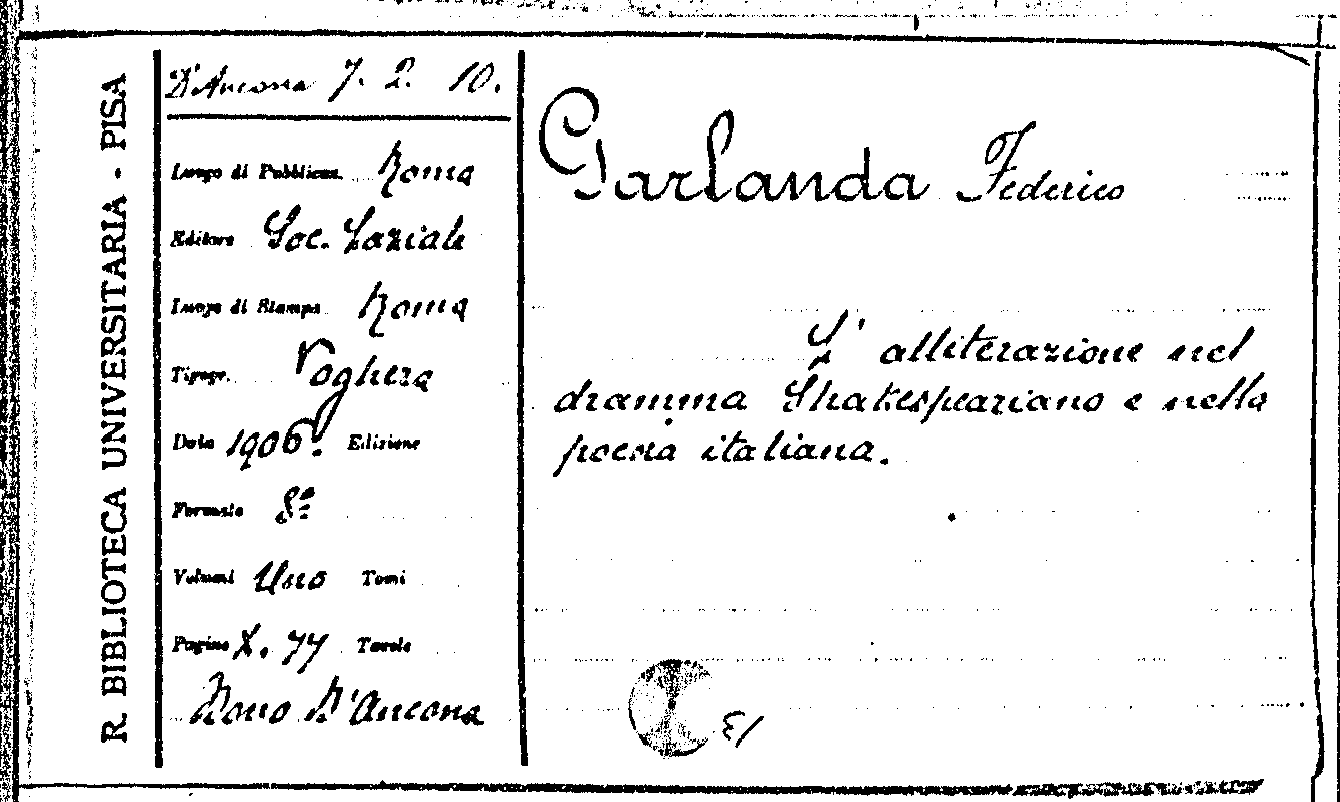 R. BIBLIOTECA UNIVERSITARIA - PISA
D'Ancona 7. 2. 10.
Luogo di Pubblicaz. Roma
Editore Soc. Laziale
Luogo di Stampa Roma
Tipogr. Voghera
Data 1906. Edizione
Formato 8º
Volumi Uno Tomi
Pagine X. 77 Tavole
Dono D'Ancona
Garlanda Federico
L' alliterazione nel
dramma Shakespeariano e nella
poesia italiana.